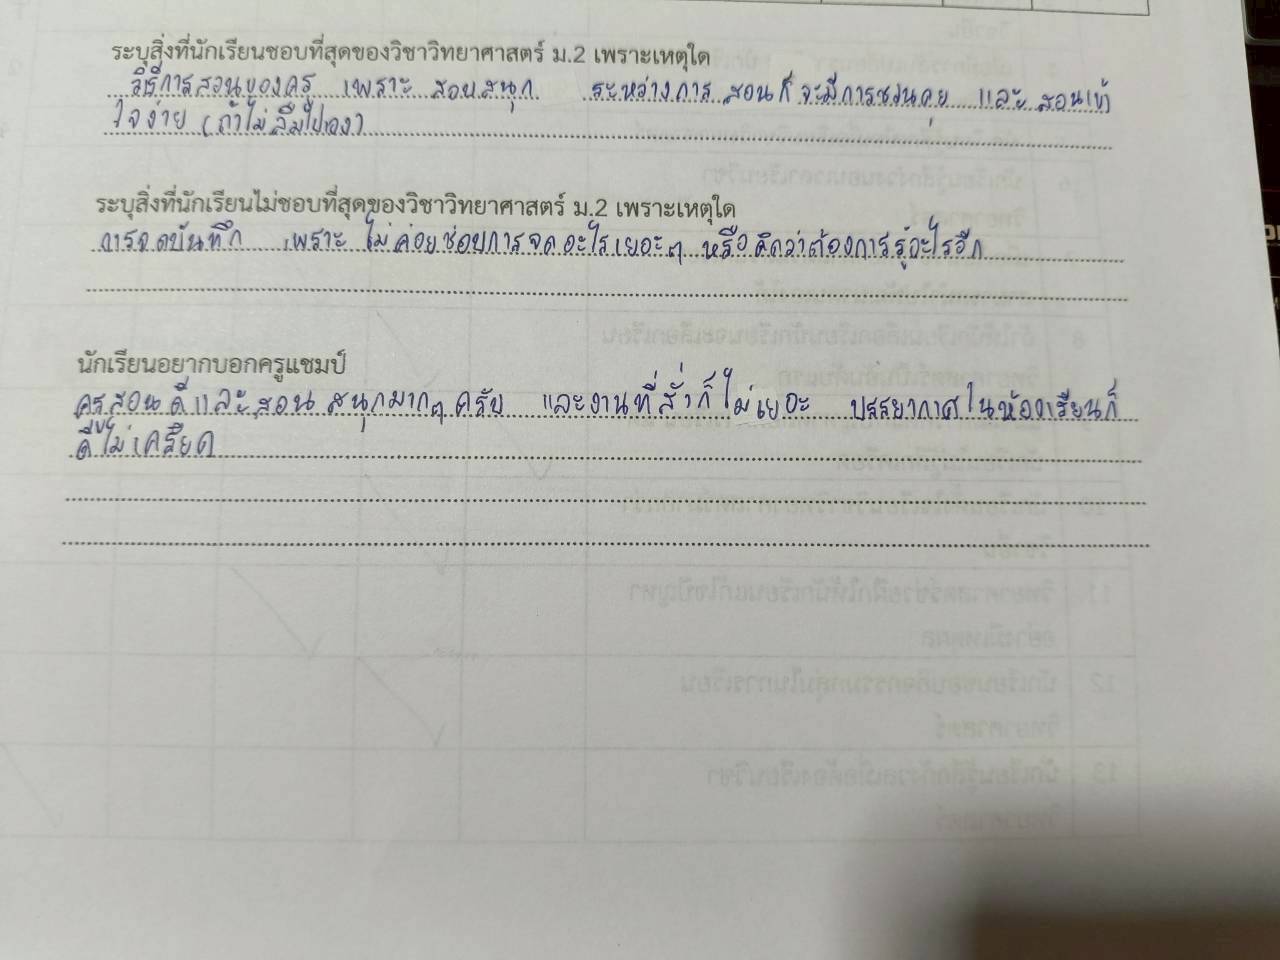 ระบุสิ่งที่นักเรียนชอบที่สุดของวิชาวิทยาศาสตร์ ม.2 เพราะเหตุใด
วิธีการสอนของครู เพราะ สอนสนุก ระหว่างการ สอนก็จะมีการชวนคุย และ สอนเข้า
ใจง่าย (ถ้าไม่ลืมไปเอง)
ระบุสิ่งที่นักเรียนไม่ชอบที่สุดของวิชาวิทยาศาสตร์ ม.2 เพราะเหตุใด
การจดบันทึก เพราะ ไม่ค่อยชอบการจดอะไรเยอะๆ หรือคิดว่าต้องการรู้อะไรอีก
นักเรียนอยากบอกครูแชมป์
ครูสอนดีและสอน สนุกมากๆครับ และงานที่สั่งก็ไม่เยอะ บรรยากาศในห้องเรียนก็
ดีไม่เครียด